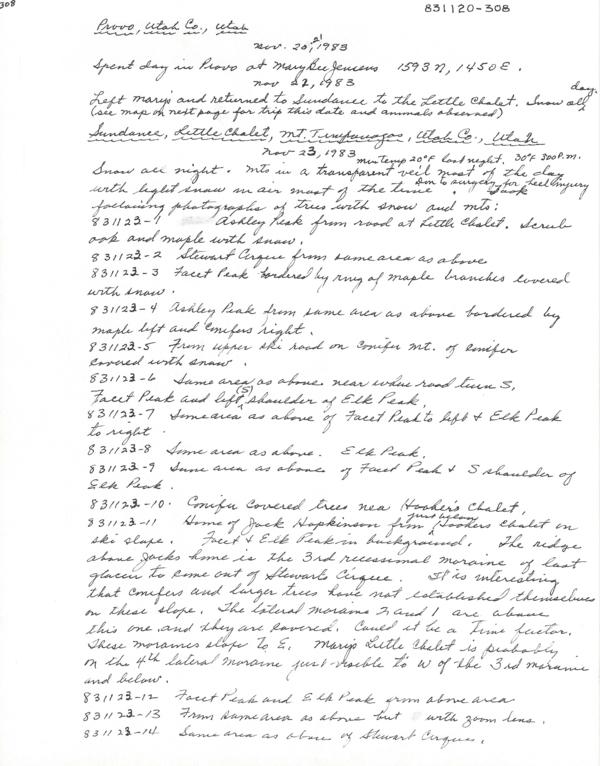 308
831120-308
Provo, Utah Co., Utah
Nov. 20, 21, 1983
Spent day in Provo at Mary Bee Jensens 1593 N, 1450 E.
Nov 22, 1983
Left Mary's and returned to Sundance to the Little Chalet. Snow all day.
(see map on next page for trip this date and animals observed)
Sundance, Little Chalet, Mt. Timpanogos, Utah Co., Utah
Nov 23, 1983 min temp 20°F last night. 30°F 300 P.M.
Snow all night. Mts in a transparent veil most of the day
with light snow in air most of the time. Dm to surgery for heel injury Took
following photographs of trees with snow and mts:
831123-1 Ashley Peak from road at Little Chalet. Scrub
oak and maple with snow.
831123-2 Stewart Cirque from same area as above
831123-3 Facet Peak bordered by ring of maple branches covered
with snow.
831123-4 Ashley Peak from same area as above bordered by
maple left and conifers right.
831123-5 From upper ski road on conifer mt. of conifer
covered with snow.
831123-6 Same area as above near where road turn S,
Facet Peak and left (S) shoulder of Elk Peak.
831123-7 Same area as above of Facet Peak to left & Elk Peak
to right.
831123-8 Same area as above. Elk Peak.
831123-9 Same area as above of Facet Peak & S shoulder of
Elk Peak.
831123-10. Conifer covered trees near Hooker's Chalet,
831123-11 Home of Jack Hopkinson from just below Hookers Chalet on
ski slope. Facet & Elk Peak in background. The ridge
above Jacks home is the 3rd recessional moraine of last
glacier to come out of Stewarts Cirque. It is interesting
that conifers and larger trees have not established themselves
on these slope. The lateral moraine 2 and 1 are above
this one and they are covered. Could it be a time factor.
These moraines slope to E. Mary's Little Chalet is probably
on the 4th lateral moraine just visible to W of the 3rd moraine
and below.
831123-12 Facet Peak and Elk Peak from above area
831123-13 From same area as above but with zoom lens.
831123-14 Same area as above of Stewart Cirque.